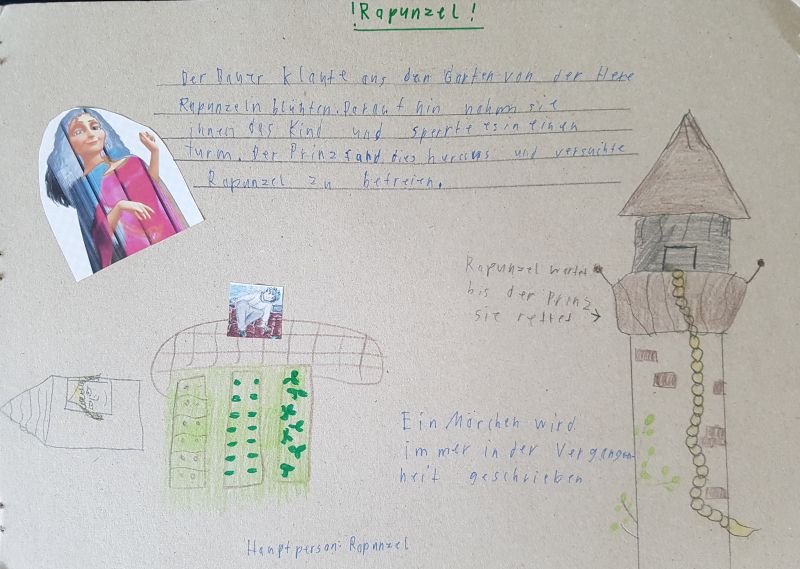 !Rapunzel!
Der Bauer klaute aus den Garten von der Hexe
Rapunzeln blühten. Darauf hin nahm sie
ihnen das Kind und sperrte es in einen
turm. Der Prinz fand dies herraus und versuchte
Rapunzel zu befreien.
Rapunzel wartet
bis der Prinz
sie rettet →
Ein Märchen wird
immer in der Vergangen-
heit geschrieben
Hauptperson: Rapunzel